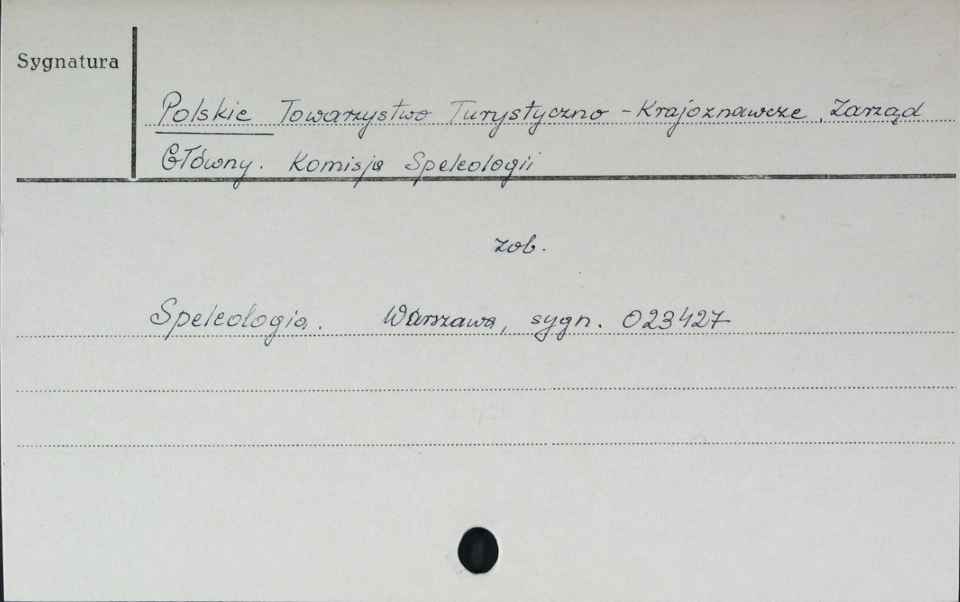 Sygnatura
Polskie Towarzystwo Turystyczno - Krajoznawcze. Zarząd
Główny. Komisja Speleologii
zob.
Speleologia. Warszawa, sygn. 023427